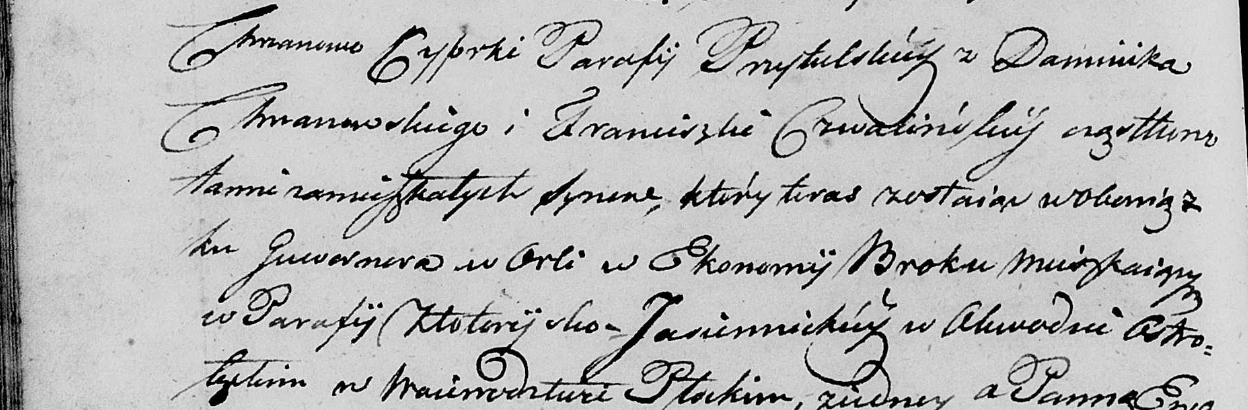 Chrzanowo Cyprki Parafij Przytulskiéy z Dominika
Chrzanowskiego i Franciszki Czwalinskiéj cząstkowe
tamże zamieszkałych synem, który teraz zostaiąc w obowiąz
ku Guwernera w Orli w Ekonomij Broku mieszkaiącym
w Parafij Złotoryjsko-Jasiennickiéy w Obwodzie Ostro=
łęckim w Woiewodztwie Płockim, ziedney a Panną Ewą